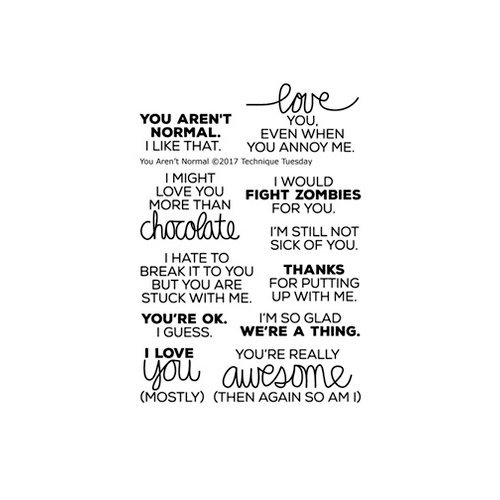 YOU AREN'T
NORMAL.
I LIKE THAT.
love
YOU,
EVEN WHEN
YOU ANNOY ME.
You Aren't Normal ©2017 Technique Tuesday
I MIGHT
LOVE YOU
MORE THAN
chocolate
I WOULD
FIGHT ZOMBIES
FOR YOU.
I'M STILL NOT
SICK OF YOU.
I HATE TO
BREAK IT TO YOU
BUT YOU ARE
STUCK WITH ME.
THANKS
FOR PUTTING
UP WITH ME.
YOU'RE OK.
I GUESS.
I'M SO GLAD
WE'RE A THING.
I LOVE
you
(MOSTLY)
YOU'RE REALLY
awesome
(THEN AGAIN SO AM I)